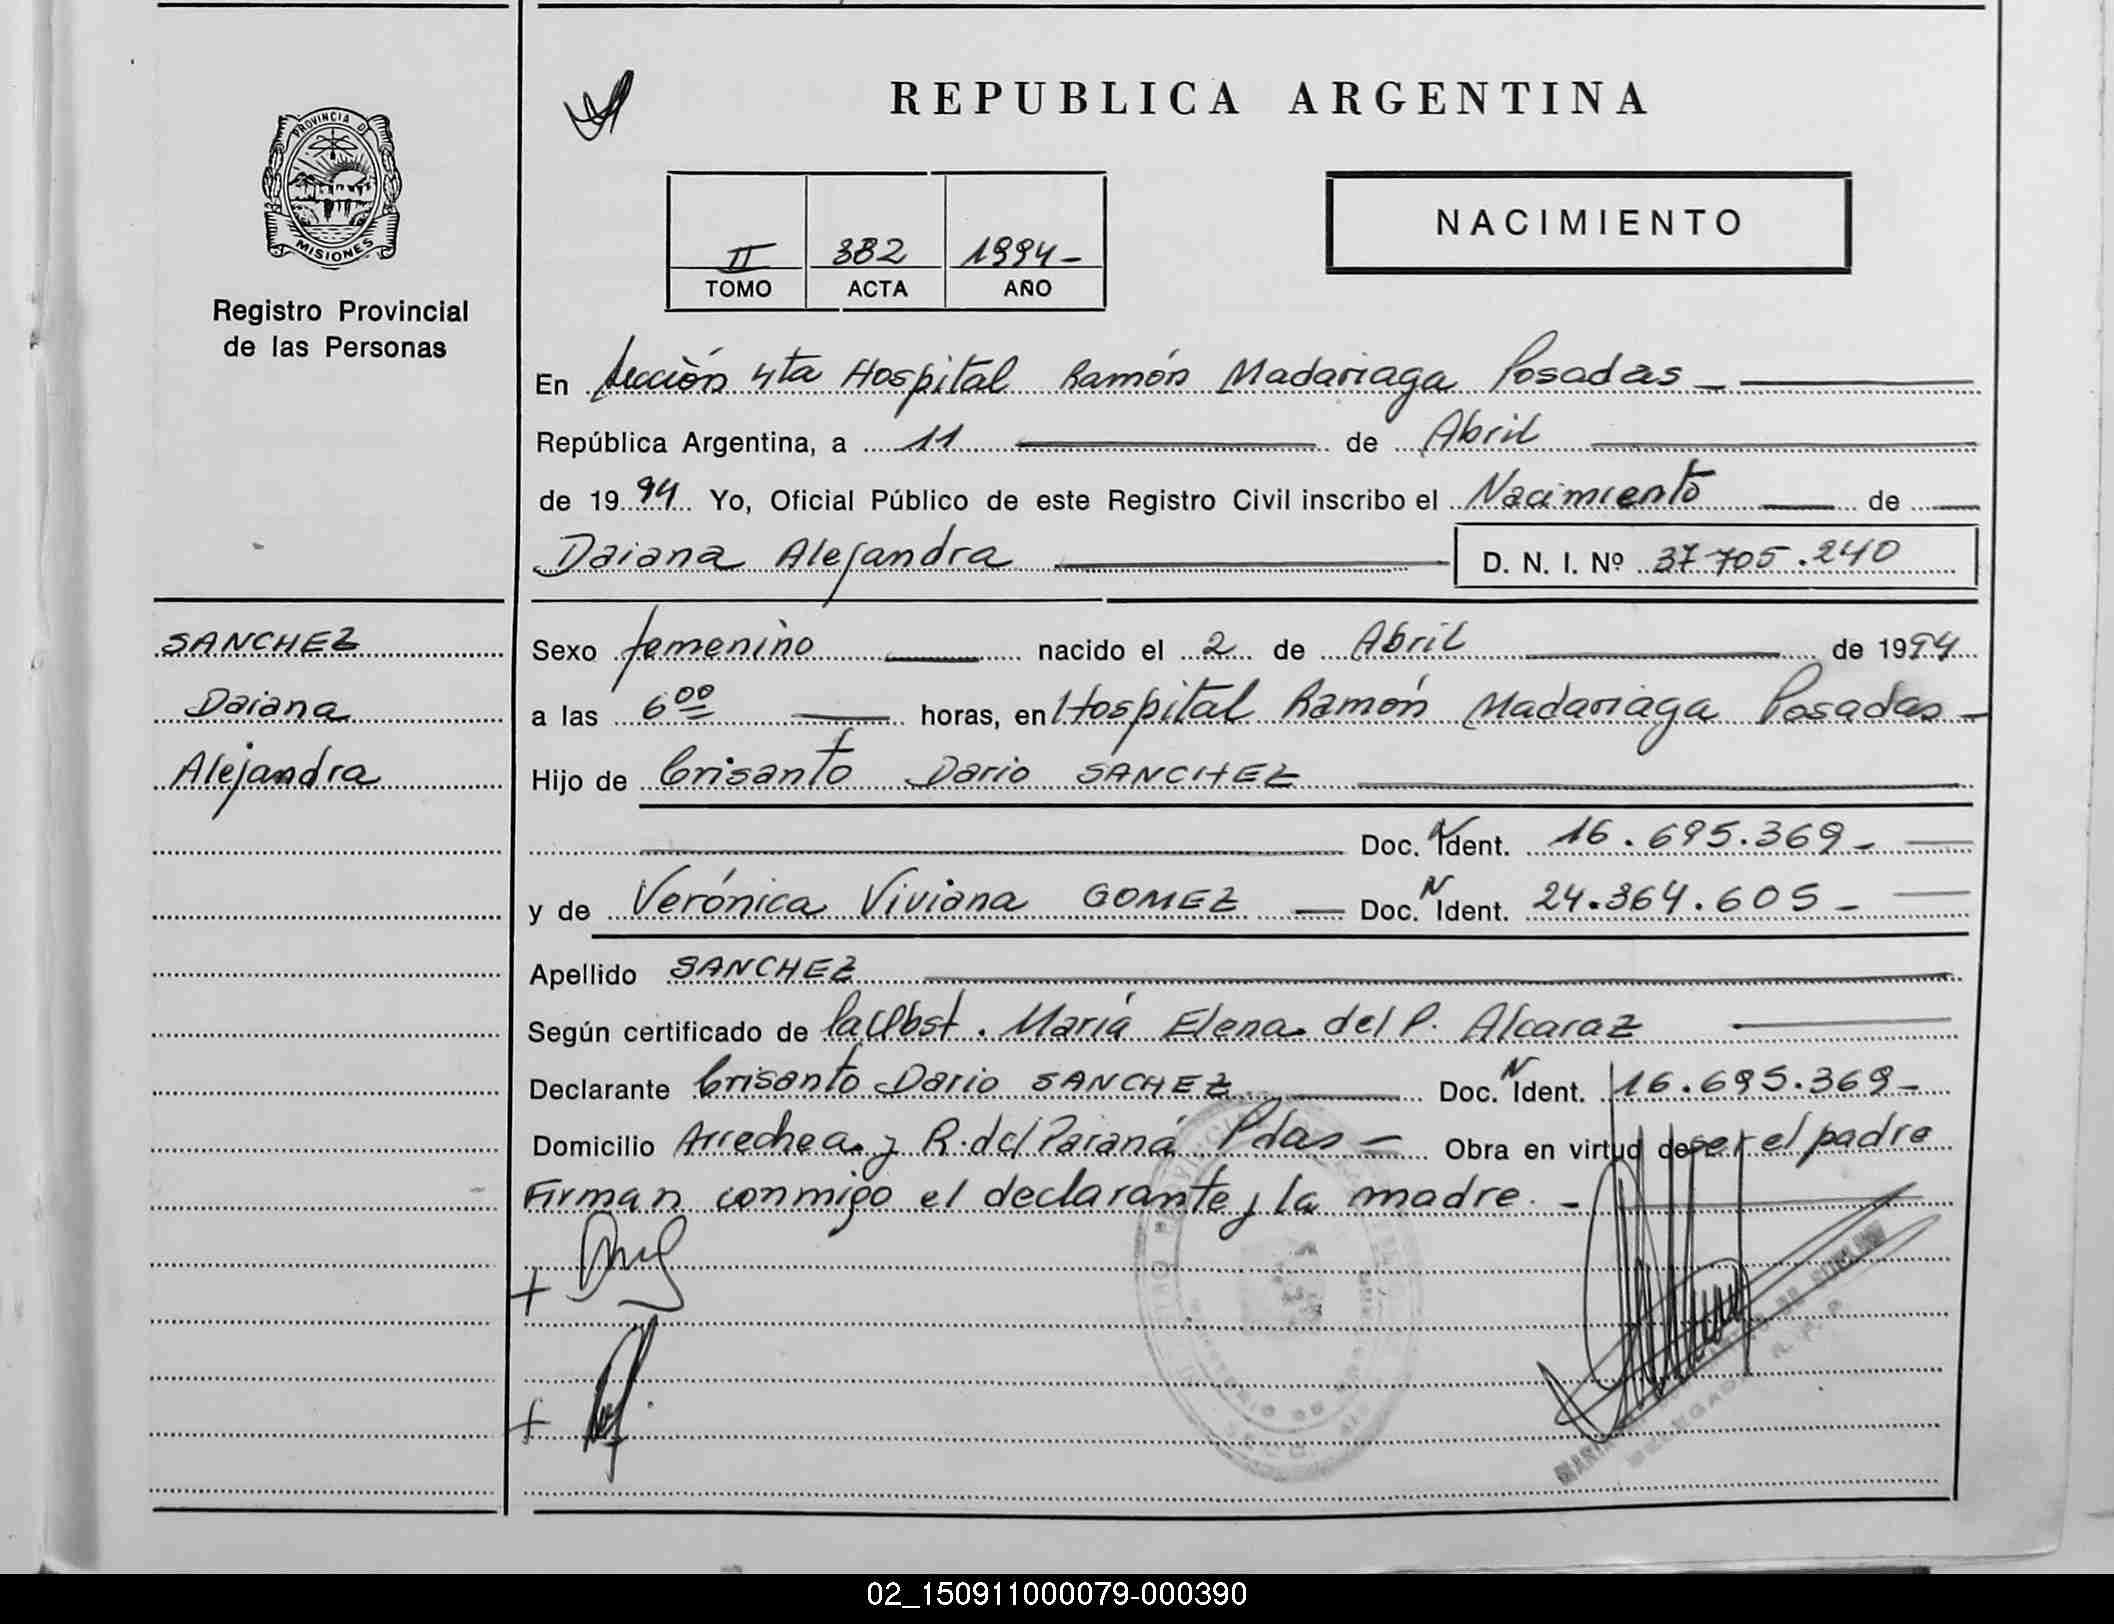 REPUBLICA ARGENTINA
PROVINCIA D
MISIONES
Registro Provincial
de las Personas
II 382 1994-
TOMO ACTA AÑO
NACIMIENTO
En Sección 4ta Hospital Ramón Madariaga Posadas -
República Argentina, a 11 de Abril
de 1994 Yo, Oficial Público de este Registro Civil inscribo el Nacimiento de
Daiana Alejandra D. N. I. Nº 37705.240
SANCHEZ
Daiana
Alejandra
Sexo femenino nacido el 2 de Abril de 1994
a las 6 00 horas, en Hospital Ramón Madariaga Posadas -
Hijo de Crisanto Dario SANCHEZ
Doc. N Ident. 16.695.369-
y de Verónica Viviana GOMEZ Doc. N Ident. 24.364.605-
Apellido SANCHEZ
Según certificado de la Obst. María Elena del P. Alcaraz
Declarante Crisanto Dario SANCHEZ Doc. N Ident. 16.695.369-
Domicilio Arrechea y R. del Paraná Pdas - Obra en virtud de ser el padre
Firman conmigo el declarante y la madre. -
02_150911000079-000390